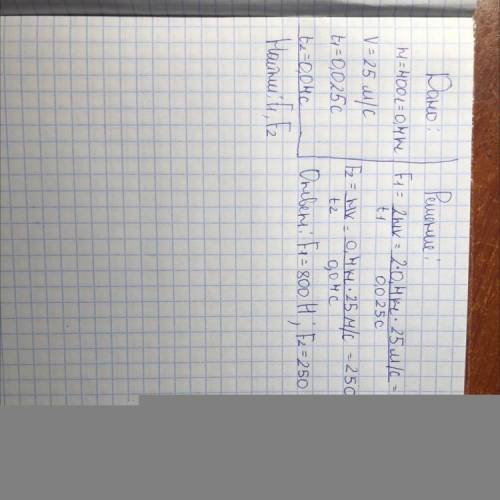 Дано:
m=400г=0,4кг
V=25 м/с
t1=0,025с
t2=0,04с
Найти: F1, F2
Решение:
F1 = 2mv/t1 = 2·0,4кг·25м/с/0,025с =
F2 = mv/t2 = 0,4кг·25м/с/0,04с = 250
Ответ: F1=800Н; F2=250